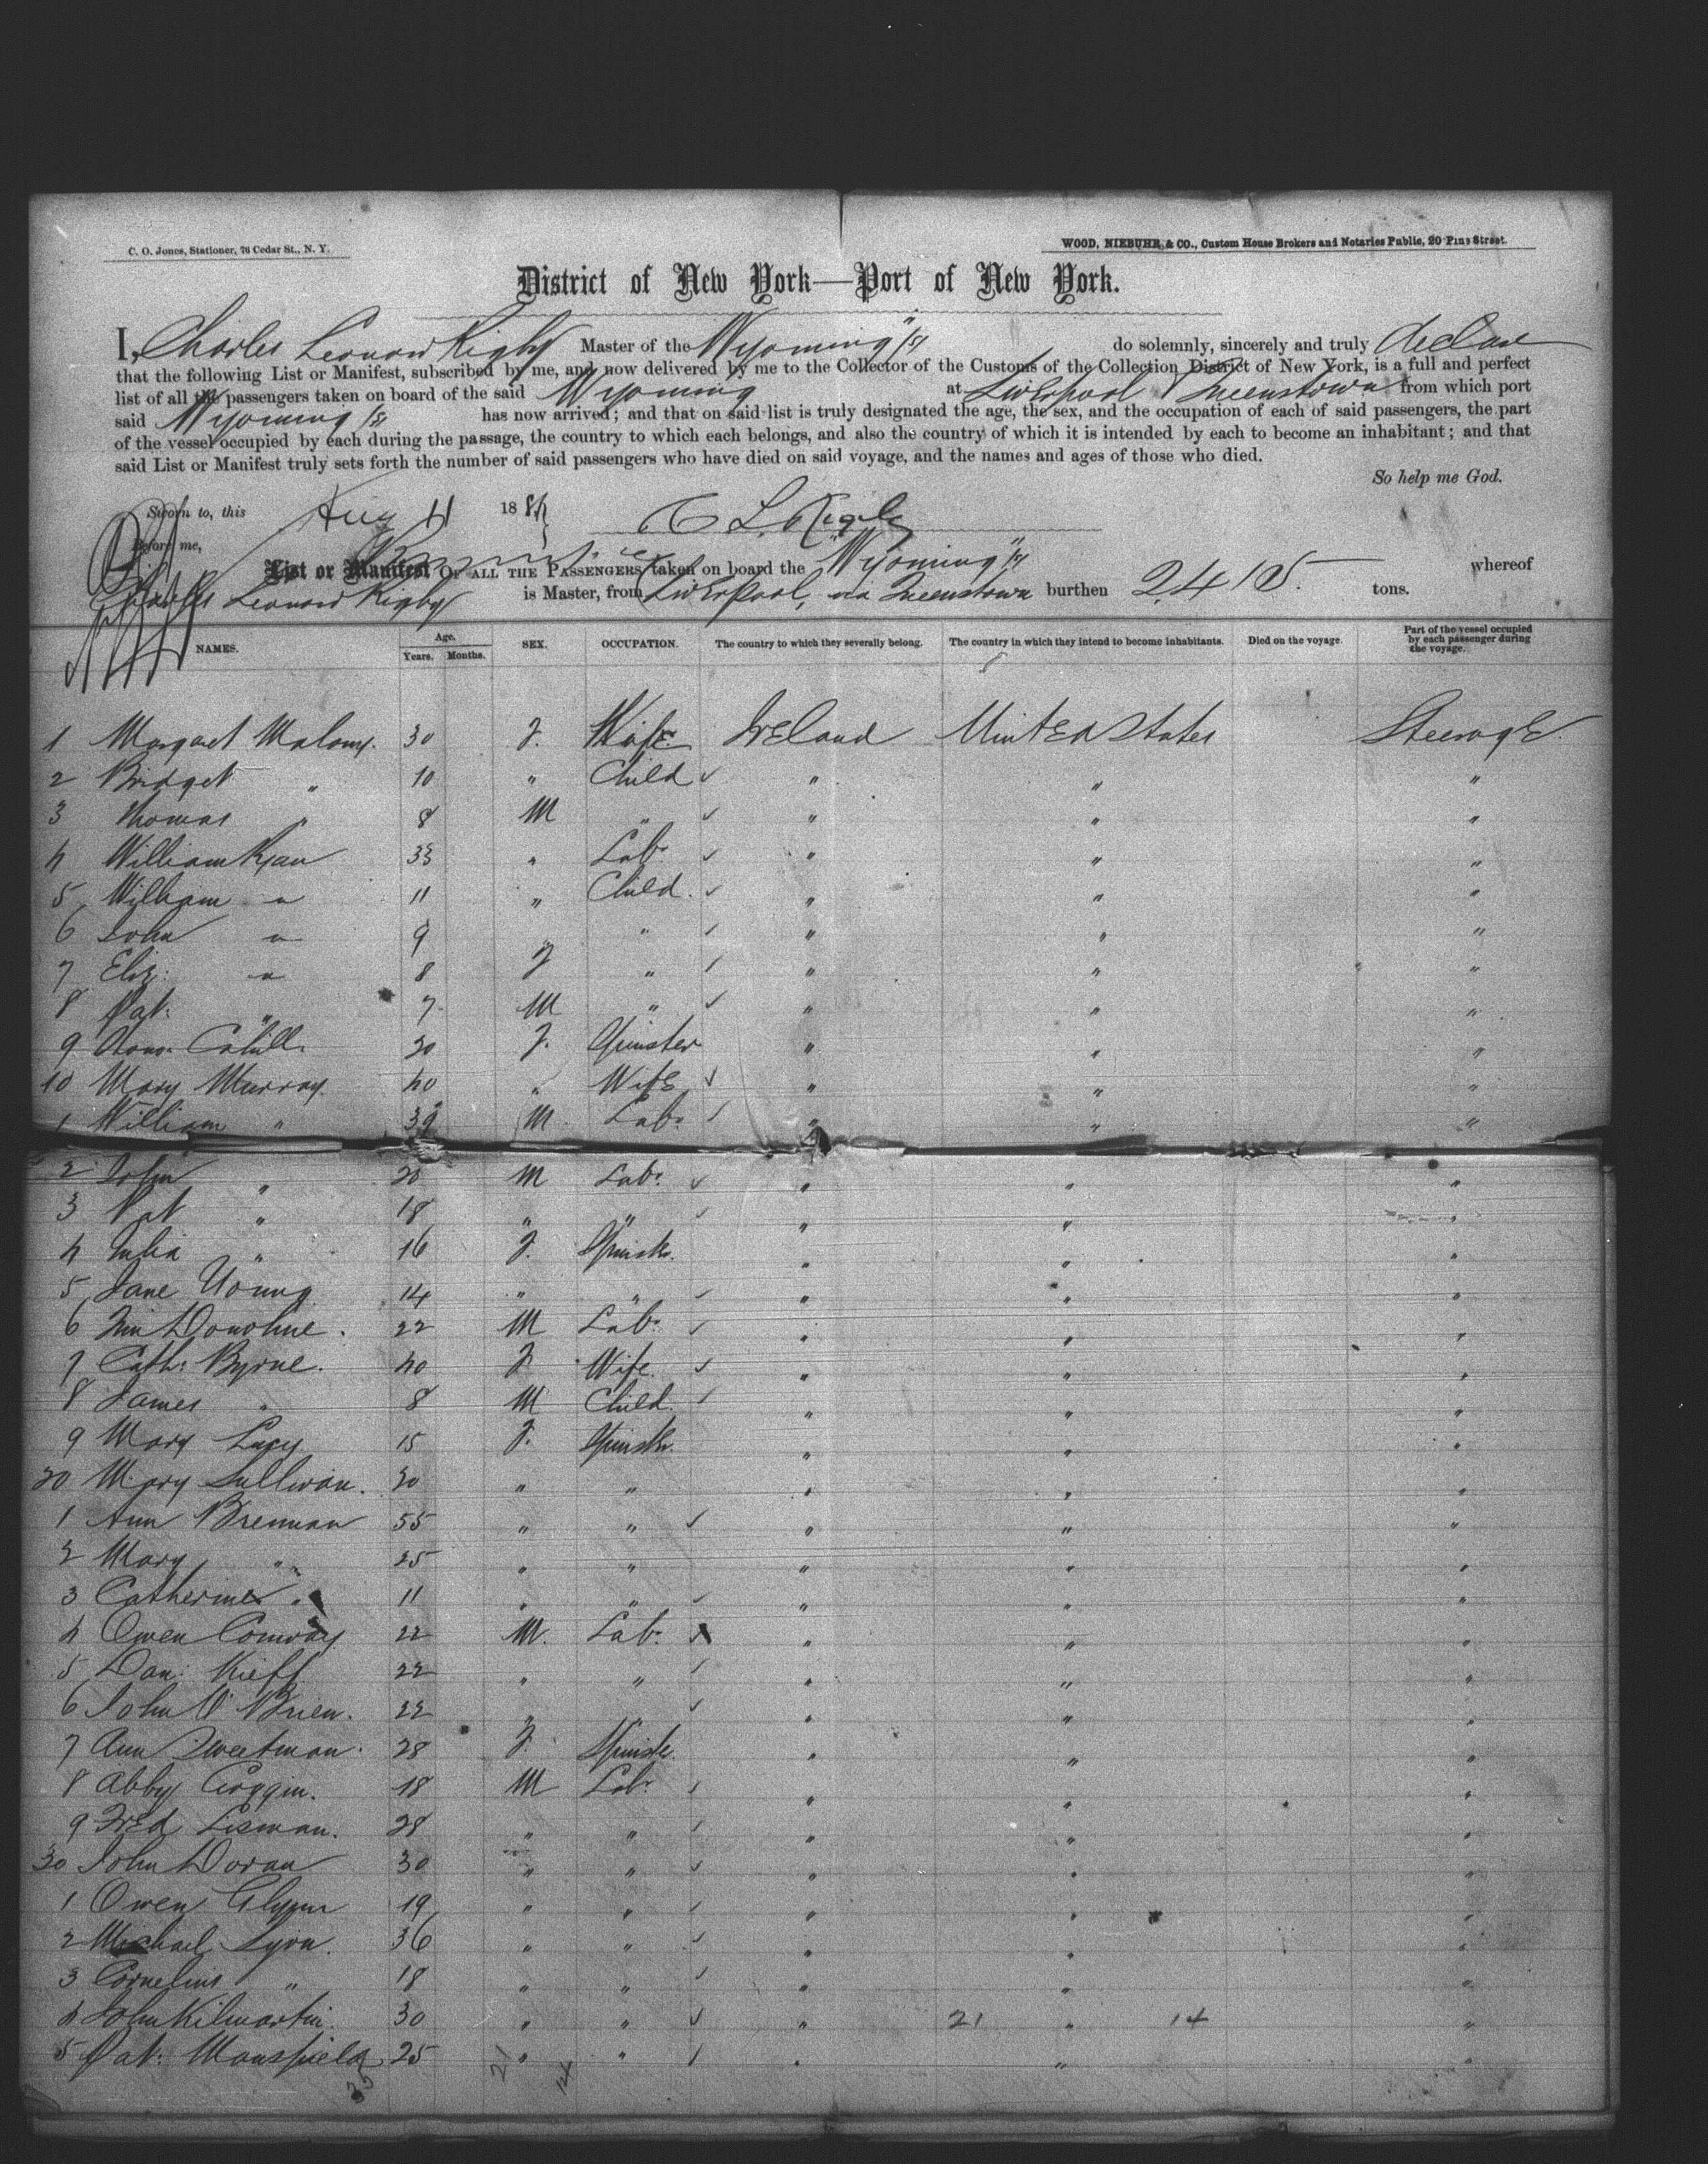 C. O. Jones, Stationer, 76 Cedar St., N. Y.
WOOD, NIEBUHR, & CO., Custom House Brokers and Notaries Public, 20 Pine Street.
District of New York—Port of New York.
I, Charles Leonard Rigby Master of the "Wyoming" do solemnly, sincerely and truly declare
that the following List or Manifest, subscribed by me, and now delivered by me to the Collector of the Customs of the Collection District of New York, is a full and perfect
list of all the passengers taken on board of the said Wyoming at Liverpool Queenstown from which port
said Wyoming has now arrived; and that on said list is truly designated the age, the sex, and the occupation of each of said passengers, the part
of the vessel occupied by each during the passage, the country to which each belongs, and also the country of which it is intended by each to become an inhabitant; and that
said List or Manifest truly sets forth the number of said passengers who have died on said voyage, and the names and ages of those who died.
So help me God.
Sworn to, this Aug 11 188 C L Rigby
Before me,
List or Manifest OF ALL THE PASSENGERS taken on board the "Wyoming" whereof
Charles Leonard Rigby is Master, from Liverpool, via Queenstown burthen 2415. tons.
NAMES. Age. Years. Months. SEX. OCCUPATION. The country to which they severally belong. The country in which they intend to become inhabitants. Died on the voyage. Part of the vessel occupied by each passenger during the voyage.
1 Margaret Malony. 30 F. Wife Ireland United States Steerage
2 Bridget " 10 " Child " " "
3 Thomas " 8 M " " " "
4 William Ryan 33 " Labr " " "
5 William " 11 " Child " " "
6 John " 9 " " " " "
7 Eliz: " 8 F " " " "
8 Pat: " 7 M " " " "
9 Cahill. F. Spinster " " "
10 Mary Murray. 40 " Wife " " "
1 William " 39 M Labr " " "
2 John " 20 M Labr " " "
3 Pat " 18 " " " " "
4 Julia " 16 F. Spinstr. " " "
5 Jane Young 14 " " " " "
6 Tim Donohue. 22 M Labr " " "
7 Cath: Byrne. 40 F Wife. " " "
8 James " 8 M Child. " " "
9 Mary Lucy 15 F. Spinstr. " " "
20 Mary Sullivan. " " " " "
1 Ann Brennan 55 " " " " "
2 Mary " 25 " " " " "
3 Catherine " 11 " " " " "
4 Owen Conway 22 M. Labr " " "
5 Dan: Kieff 22 " " " " "
6 John O'Brien. 22 " " " " "
7 Ann Sweetman. 28 F. Spinstr. " " "
8 Abby Coggin. 18 M Labr " " "
9 Fred Lisman. 28 " " " " "
30 John Doran 30 " " " " "
1 Owen Glynn 19 " " " " "
2 Michael Lyon. 36 " " " " "
3 Cornelius " 18 " " " " "
4 John Kilmartin. 30 " " " 21 " 14 "
5 Pat: Mansfield 25 " " " " "
35 21 14